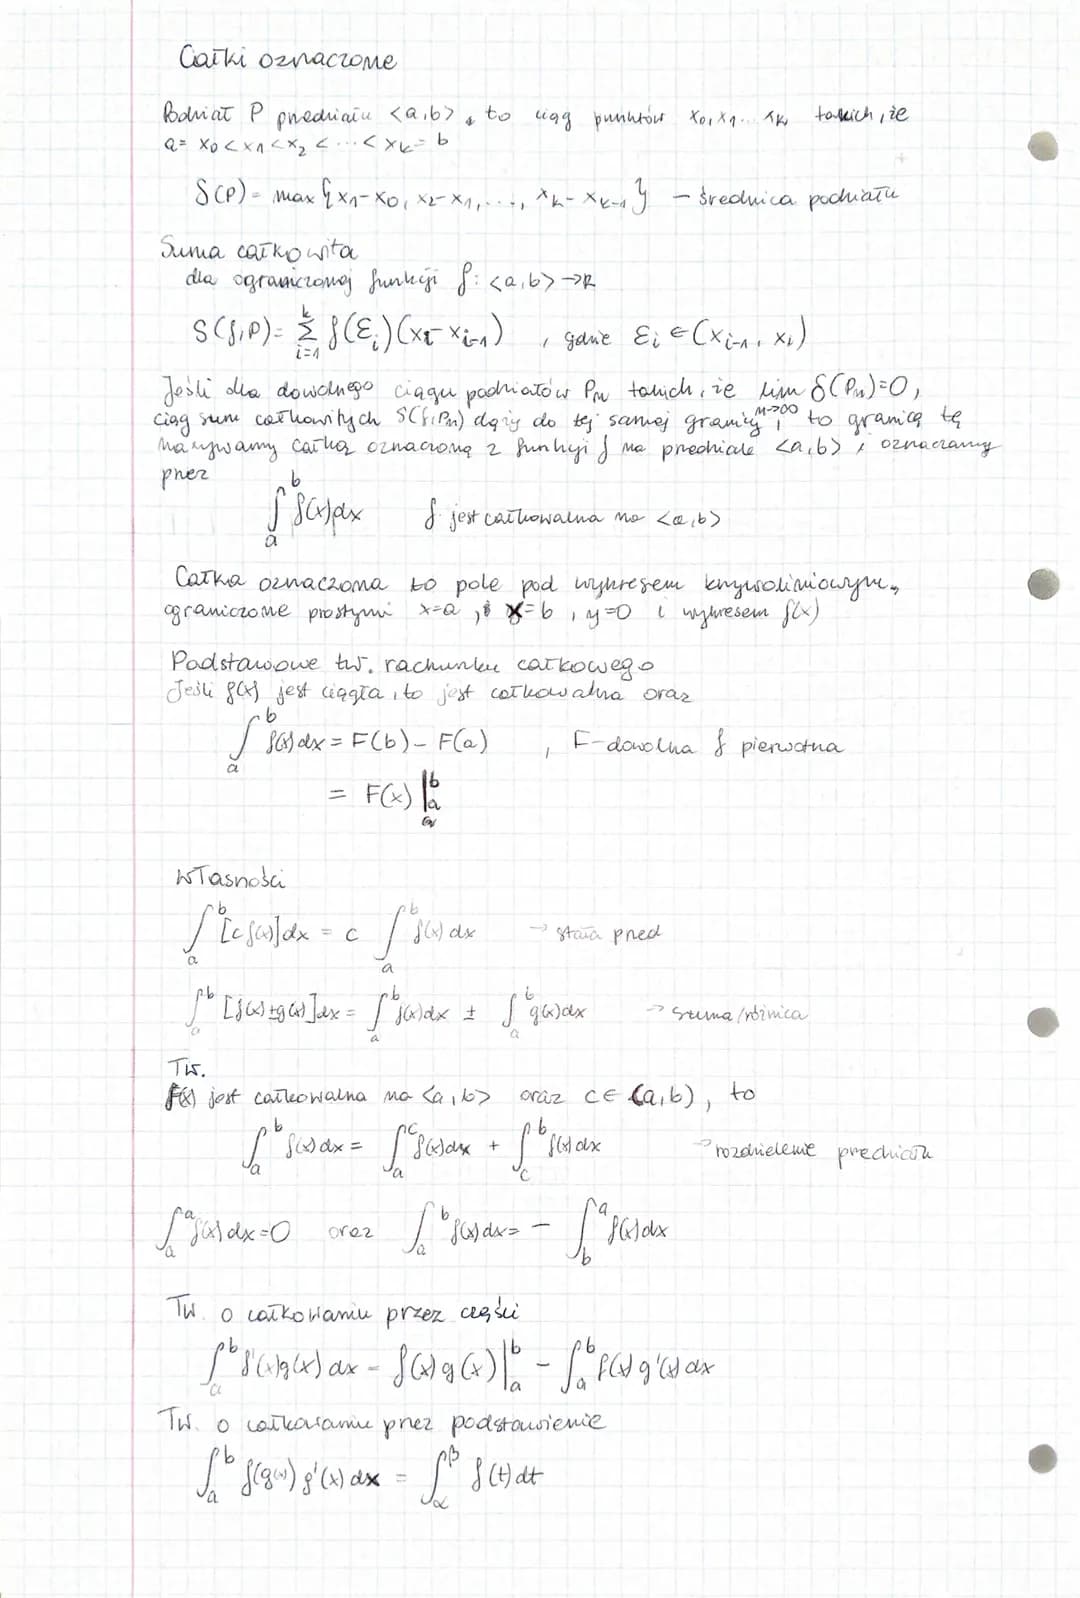 Całki oznaczone
Podział P przedziału <a,b>, to ciąg punktów x₀, x₁... xₖ takich, że
a = x₀ < x₁ < x₂ < ... < xₖ = b
δ(P) = max {x₁-x₀, x₂-x₁, ..., xₖ-xₖ₋₁} - średnica podziału
Suma całkowita
dla ograniczonej funkcji f: <a,b> → R
S(f,P) = ∑ᵢ₌₁ᵏ f(Ɛᵢ)(xᵢ-xᵢ₋₁) , gdzie Ɛᵢ ∈ (xᵢ₋₁, xᵢ)
Jeśli dla dowolnego ciągu podziałów Pₙ takich, że lim n→∞ δ(Pₙ)=0,
ciąg sum całkowitych S(f,Pₙ) dąży do tej samej granicy, to granicę tę
nazywamy całką oznaczoną z funkcji f na przedziale <a,b> i oznaczamy
przez
∫ₐᵇ f(x)dx f jest całkowalna na <a,b>
Całka oznaczona to pole pod wykresem krzywoliniowym,
ograniczone prostymi x=a, x=b, y=0 i wykresem f(x)
Podstawowe tw. rachunku całkowego
Jeśli f(x) jest ciągła, to jest całkowalna oraz
∫ₐᵇ f(x)dx = F(b) - F(a) , F-dowolna f pierwotna
= F(x) |ₐᵇ
Własności
∫ₐᵇ [c f(x)]dx = c ∫ₐᵇ f(x)dx → stała przed
∫ₐᵇ [f(x)±g(x)]dx = ∫ₐᵇ f(x)dx ± ∫ₐᵇ g(x)dx → suma/różnica
Tw.
f(x) jest całkowalna na <a,b> oraz c∈(a,b), to
∫ₐᵇ f(x)dx = ∫ₐᶜ f(x)dx + ∫꜀ᵇ f(x)dx → rozdzielenie przedziału
∫ₐᵃ f(x)dx=0 oraz ∫ₐᵇ f(x)dx = - ∫_bᵃ f(x)dx
Tw. o całkowaniu przez części
∫ₐᵇ f'(x)g(x)dx = f(x)g(x)|ₐᵇ - ∫ₐᵇ f(x)g'(x)dx
Tw. o całkowaniu przez podstawienie
∫ₐᵇ f(g(x))g'(x)dx = ∫_α^β f(t)dt